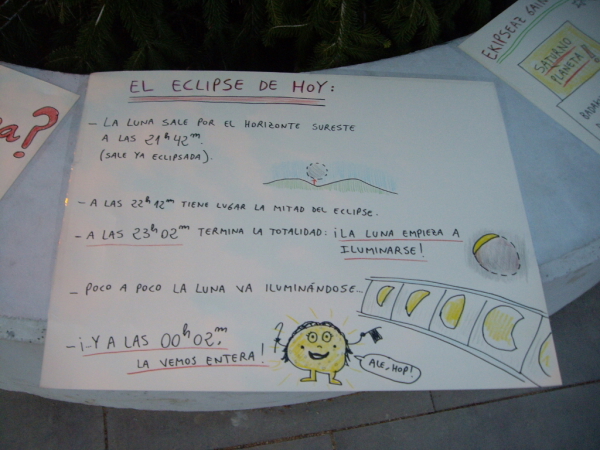 EL ECLIPSE DE HOY:
– LA LUNA SALE POR EL HORIZONTE SURESTE
A LAS 21h 42m.
(SALE YA ECLIPSADA).
– A LAS 22h 12m TIENE LUGAR LA MITAD DEL ECLIPSE.
– A LAS 23h 02m TERMINA LA TOTALIDAD: ¡LA LUNA EMPIEZA A
ILUMINARSE!
– POCO A POCO LA LUNA VA ILUMINÁNDOSE...
– ¡...Y A LAS 00h 02m,
LA VEMOS ENTERA!
ALE, HOP!
?
EKIPSEAZ GAIN
SATURNO
PLANETA!!